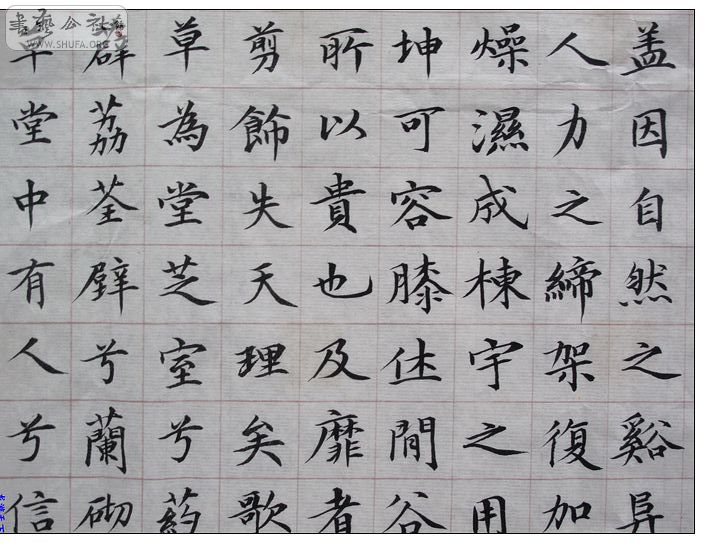 盖因自然之谿
人力之締架復加
燥濕成棟宇之用
坤可容膝休閒谷
所以貴也及靡者
剪飾失天理矣歌
草為堂芝室兮葯
薜荔荃壁兮蘭砌
草堂中有人兮信
書藝公社
WWW.SHUFA.ORG